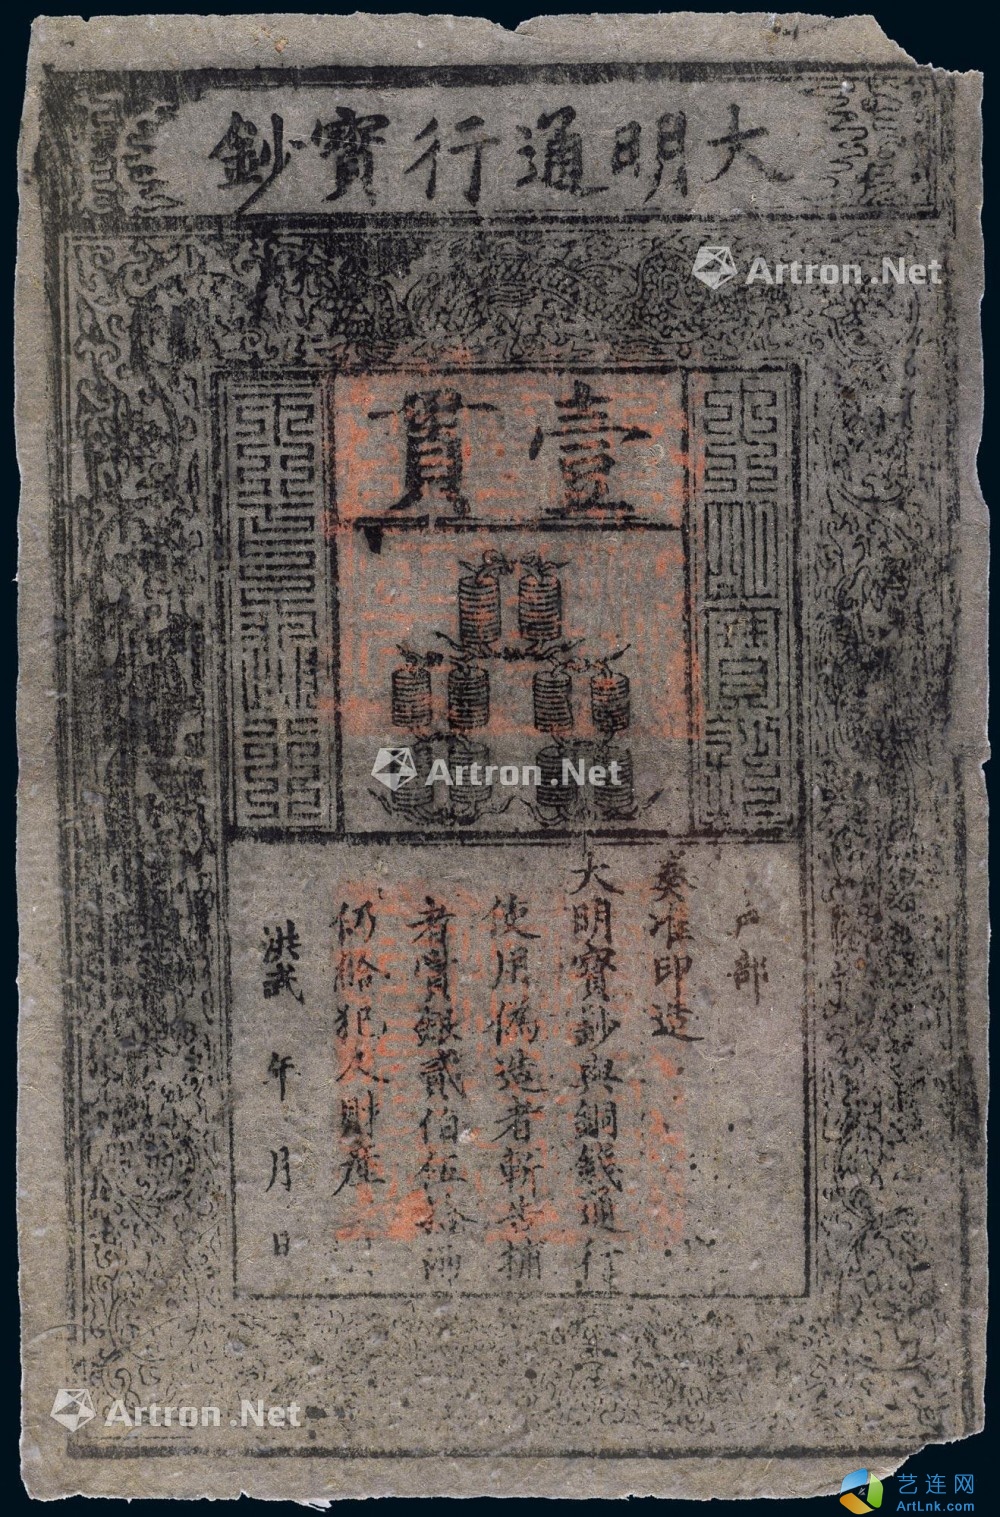 大明通行寶鈔
壹貫
大明寶鈔
天下通行
户部
奏准印造
大明寶鈔與銅錢通行
使用偽造者斬告捕
者賞銀貳伯伍拾兩
仍給犯人財產
洪武 年 月 日
Artron.Net
Artron.Net
Artron.Net
艺连网
ArtLnk.com